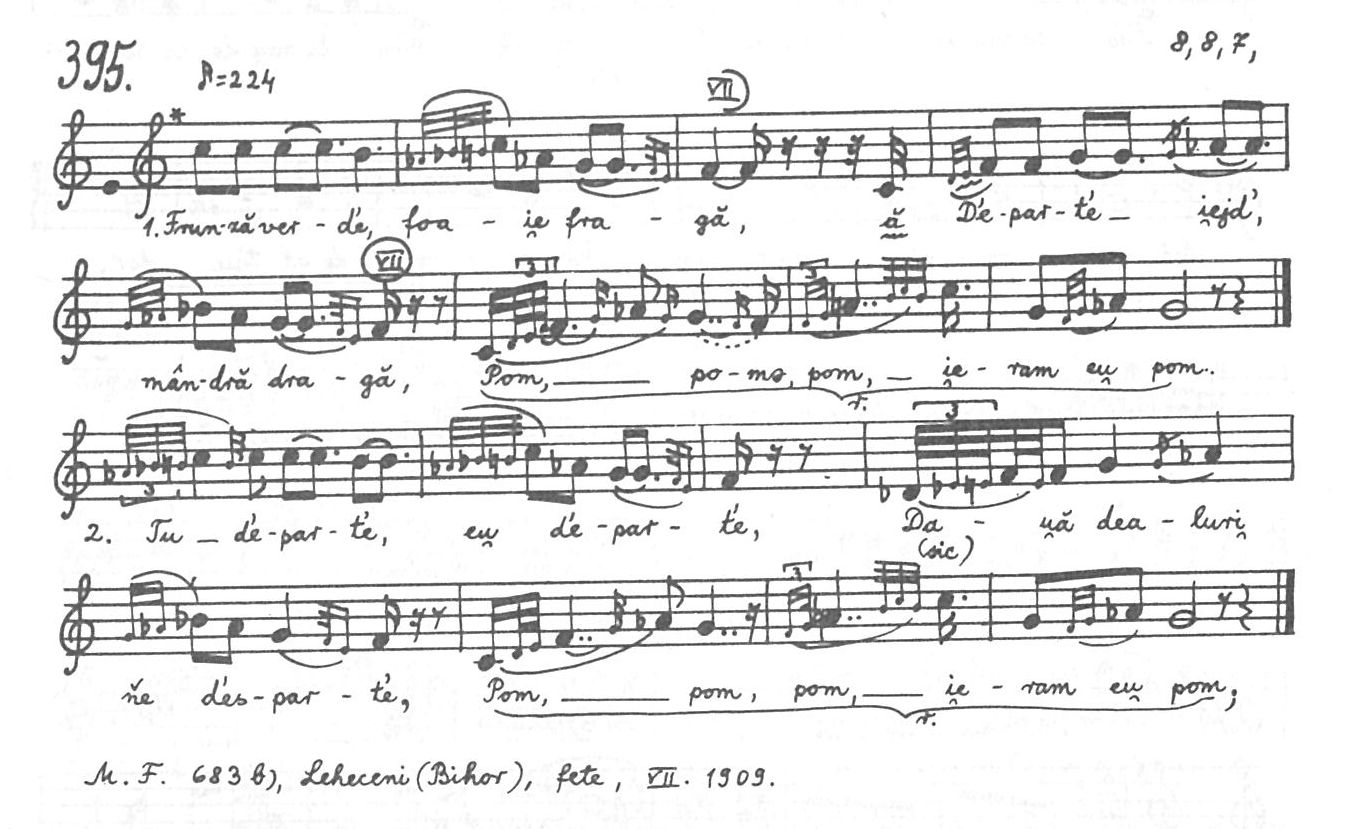 395. ♪=224 8, 8, 7,
VII
1. Frun-ză ver - d́e, foa - i̯e fra - gă, ă D́e-par-t́e – i̯ejd́,
VII
3 3
mân-dră dra - gă, Pom, ___ po-mə, pom, – i̯e - ram eu̯ pom..
r.
3 3
2. Tu – d́e-par-t́e, eu̯ d́e-par-t́e, Da - u̯ă dea-luri̯
(sic)
3
ňe d́es-par-t́e, Pom, ___ pom, pom, ___ i̯e - ram eu̯ pom;
r.
M. F. 683 b), Leheceni (Bihor), fete, VII. 1909.